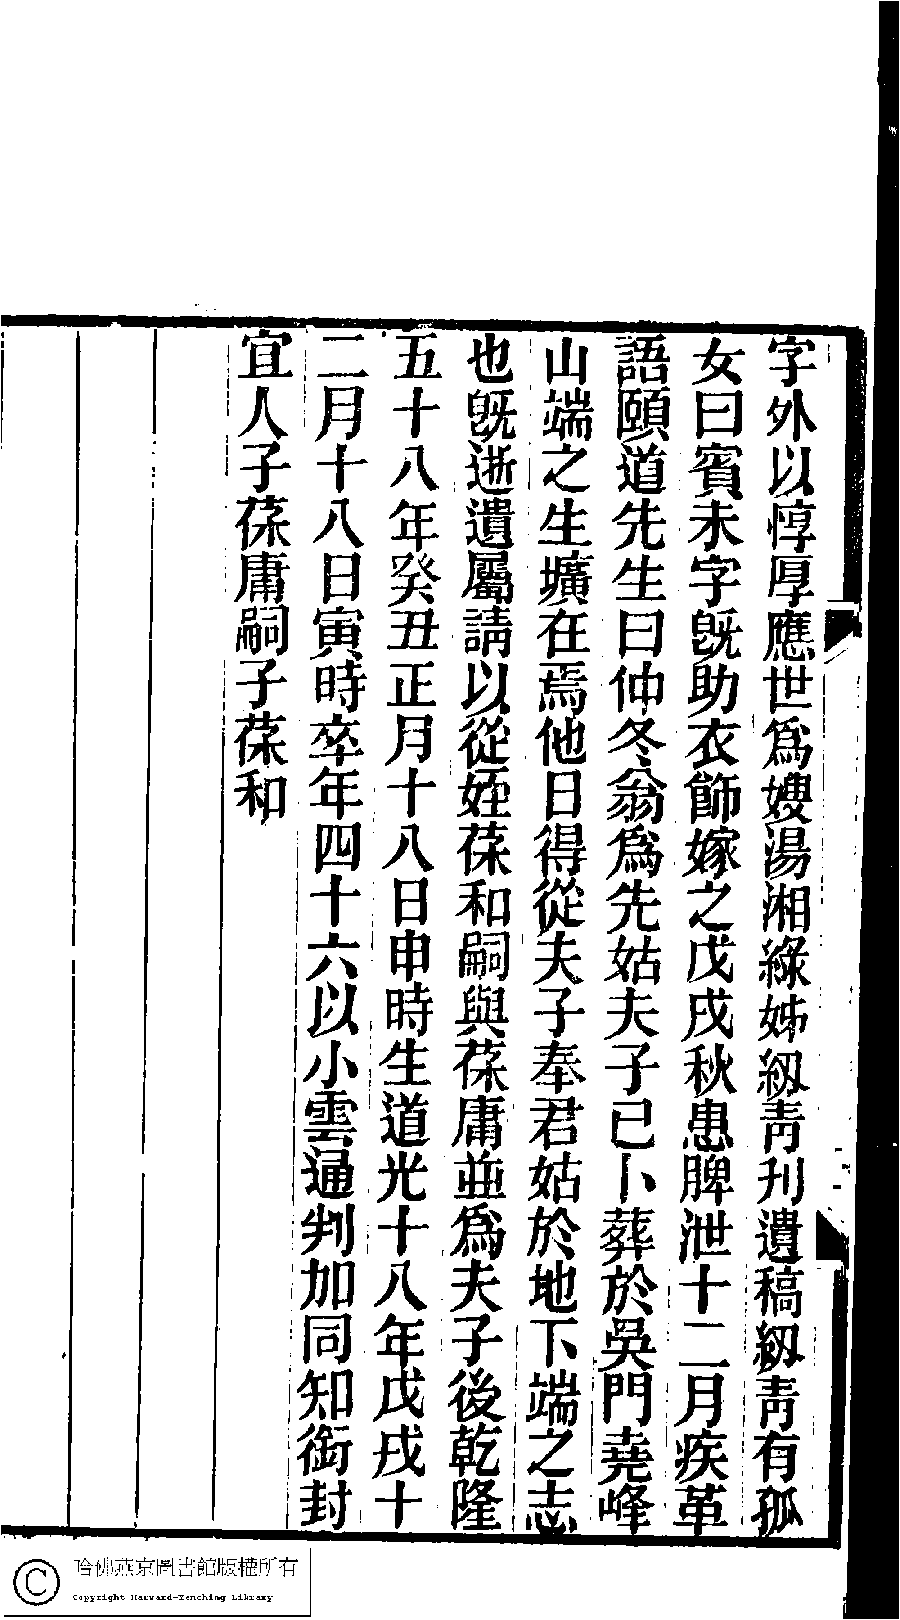 字外以惇厚應世爲嫂湯湘綠姊紉青刊遺稿紉青有孤
女曰賓未字旣助衣飾嫁之戊戌秋患脾泄十二月疾革
語頤道先生曰仲冬翁爲先姑夫子已卜葬於吳門堯峰
山端之生壙在焉他日得從夫子奉君姑於地下端之志
也旣逝遺屬請以從姪葆和嗣與葆庸並爲夫子後乾隆
五十八年癸丑正月十八日申時生道光十八年戊戌十
二月十八日寅時卒年四十六以小雲通判加同知銜封
宜人子葆庸嗣子葆和
哈佛燕京圖書館版權所有
Copyright Harvard-Yenching Library